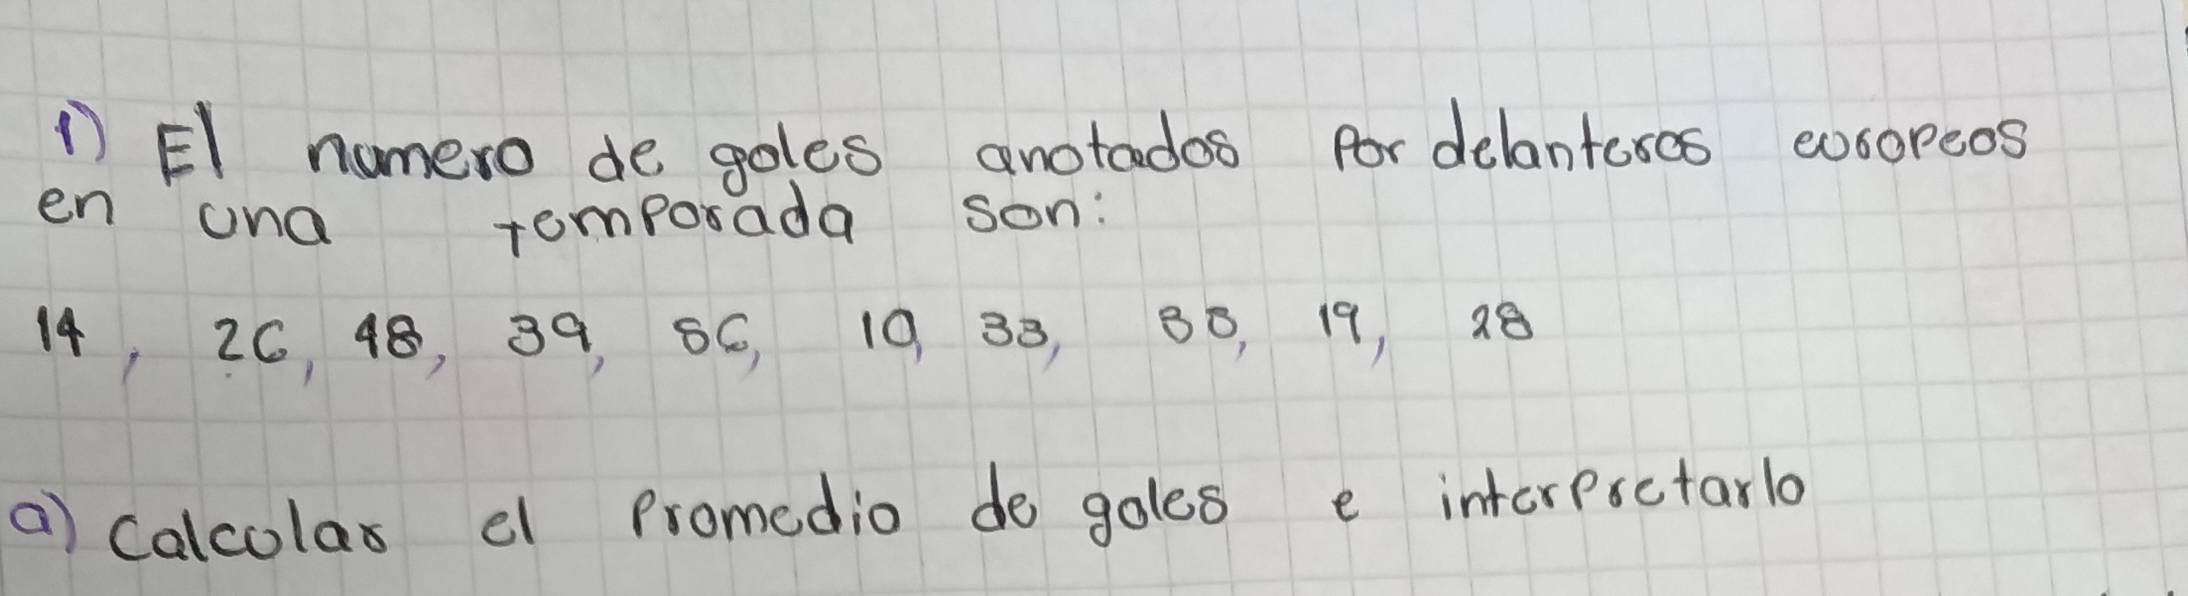 1) El numero de goles anotados Por delanteros europeos
en una temporada son:
14, 26, 48, 39, 56, 19, 33, 38, 19, 28
a) Calcular el promedio de goles e interpretarlo